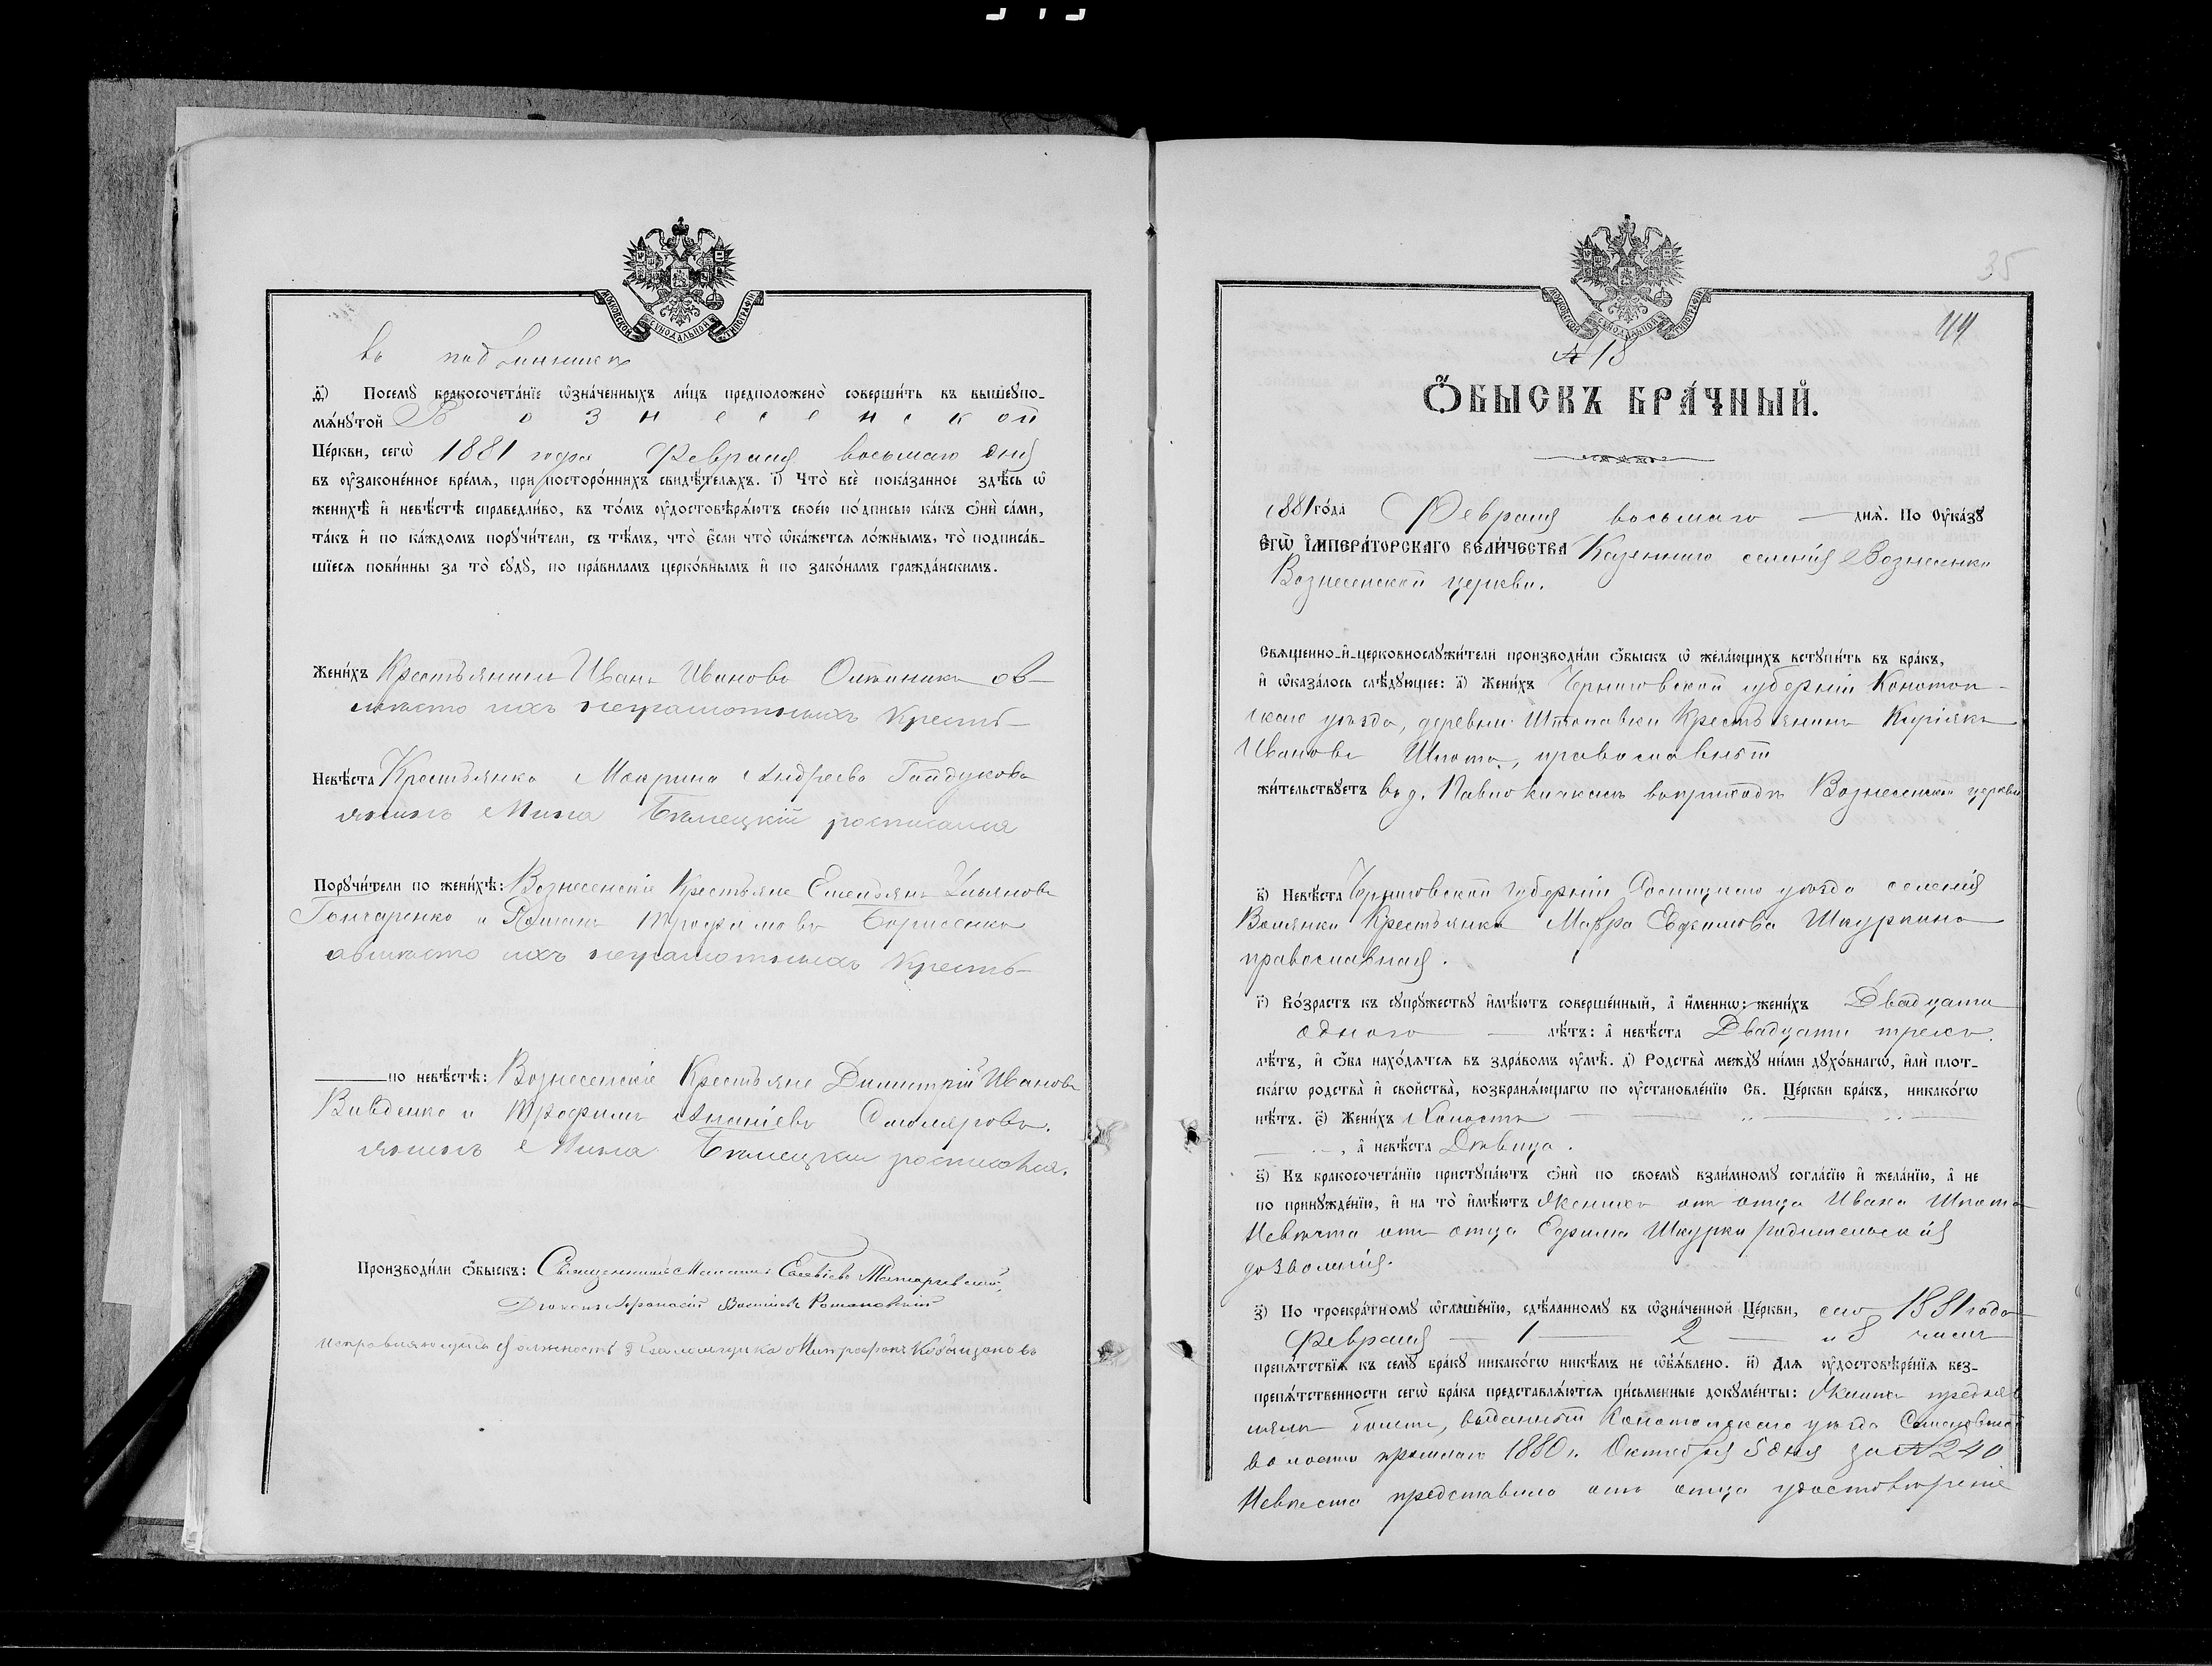 МОСКОВСКОЙ СѴНОДАЛЬНОЙ ТИПОГРАФІИ
въ подлинникѣ
ѳ҃) Посемꙋ̀ бракосочета́нїе ѡ҆зна́ченныхъ ли́цъ предположено̀ соверши́ть въ вышеꙋпо-
мѧ́нꙋтой Вознесенской
Це́ркви, сегѡ̀ 1881 года Февраля восьмаго дня
въ ᲂу҆зако́ненное вре́мѧ, при посторо́ннихъ свидѣ́телѧхъ. і҃) Что̀ всѐ пока́занное здѣ́сь ѡ҆
женихѣ̀ и҆ невѣ́стѣ справедли́во, въ то́мъ ᲂу҆достовѣрѧ́ютъ свое́ю по́дписью ка́къ ѻ҆нѝ са́ми,
та́къ и҆ по ка́ждомъ порꙋчи́тели, съ тѣ́мъ, что̀ є҆́сли что̀ ѡ҆ка́жетсѧ ло́жнымъ, то̀ подписа́в-
шїесѧ пови́нны за то̀ сꙋдꙋ̀, по пра́виламъ церко́внымъ и҆ по зако́намъ гражда́нскимъ.
Жени́хъ Крестьянинъ Иванъ Ивановъ
вмѣсто ихъ неграмотныхъ Кресть-
Невѣ́ста Крестьянка Марина Андреева Гайдукова
янинъ Мина Бѣлецкій росписался
Порꙋчи́тели по женихѣ̀: Вознесенскіе Крестьяне Емельянъ Ульяновъ
Гончаренко и Романъ Трофимовъ Борисенко
авмѣсто ихъ неграмотныхъ Кресть-
по невѣ́стѣ: Вознесенскіе Крестьяне Димитрій Ивановъ
и Трофимъ Ананіевъ Столяровъ.
янинъ Мина Бѣлецкій росписался.
Производи́ли ѻ҆́быскъ: Священникъ
Діаконъ Афанасій Романовскій
Исправляющій должность Псаломщика Митрофанъ
35
44
МОСКОВСКОЙ СѴНОДАЛЬНОЙ ТИПОГРАФІИ
№ 18
Ѻ҆́БЫСКЪ БРА́ЧНЫЙ.
1881 го́да Февраля восьмаго днѧ̀. По Оу҆ка́зꙋ
Є҆ГѠ̀ І҆МПЕРА́ТОРСКАГО ВЕЛИ́ЧЕСТВА Казеннаго селенія Вознесенки
Вознесенской церкви.
Свѧще́нно-и҆-церковнослꙋжи́тели производи́ли ѻ҆́быскъ ѡ҆ жела́ющихъ встꙋпи́ть въ бра́къ,
и҆ ѡ҆каза́лось слѣ́дꙋющее: а҃) Жени́хъ Черниговской губерніи Конотоп-
скаго уѣзда, деревни Шпотовки Крестьянинъ Киріякъ
Ивановъ Шпота, православный
жи́тельствꙋетъ въ д. Павлокичкасѣ въ приходѣ Вознесенской церкви
в҃) Невѣ́ста Черниговской губерніи Сосницкаго уѣзда селенія
Волынки Крестьянка Мавра Евфимова Шкуркина
православная.
г҃) Во́зрастъ къ сꙋпрꙋ́жествꙋ и҆мѣ́ютъ соверше́нный, а҆ и҆́меннѡ: жени́хъ Двадцати
одного лѣ́тъ: а҆ невѣ́ста Двадцати трехъ
лѣ́тъ, и҆ ѻ҆́ба нахо́дѧтсѧ въ здра́вомъ ᲂу҆мѣ̀. д҃) Родства̀ междꙋ̀ ни́ми дꙋхо́внагѡ, и҆лѝ плот-
ска́гѡ родства̀ и҆ сво́йства̀, возбранѧ́ющагѡ по ᲂу҆становле́нїю Св. Це́ркви бра́къ, никако́гѡ
нѣ́тъ. є҃) Жени́хъ Холостъ
, а҆ невѣ́ста Дѣвица.
ѕ҃) Къ бракосочета́нїю пристꙋпа́ютъ ѻ҆нѝ по своемꙋ̀ взаи́мномꙋ согла́сїю и҆ жела́нїю, а҆ не
по принꙋжде́нїю, и҆ на то̀ и҆мѣ́ютъ Женихъ отъ отца Ивана Шпота
Невѣста отъ отца Ефима Шкурки родительскія
дозволенія.
з҃) По троекра́тномꙋ ѡ҆глаше́нїю, сдѣ́ланномꙋ въ ѡ҆зна́ченной Це́ркви, сего 1881 года
Февраля 1 2 и 8 чиселъ
препѧ́тствїѧ къ семꙋ̀ бра́кꙋ никако́гѡ никѣ́мъ не ѡ҆б̾ѧ́влено. и҃) Длѧ̀ ᲂу҆достовѣре́нїѧ без-
препѧ́тственности сегѡ̀ бра́ка представлѧ́ютсѧ пи́сьменные докꙋме́нты: Женихъ
билетъ, выданный Конотопскаго уѣзда
волости прошлаго 1880 г. Октября 5 дня за № 240
Невѣста представила отъ отца удостовѣреніе